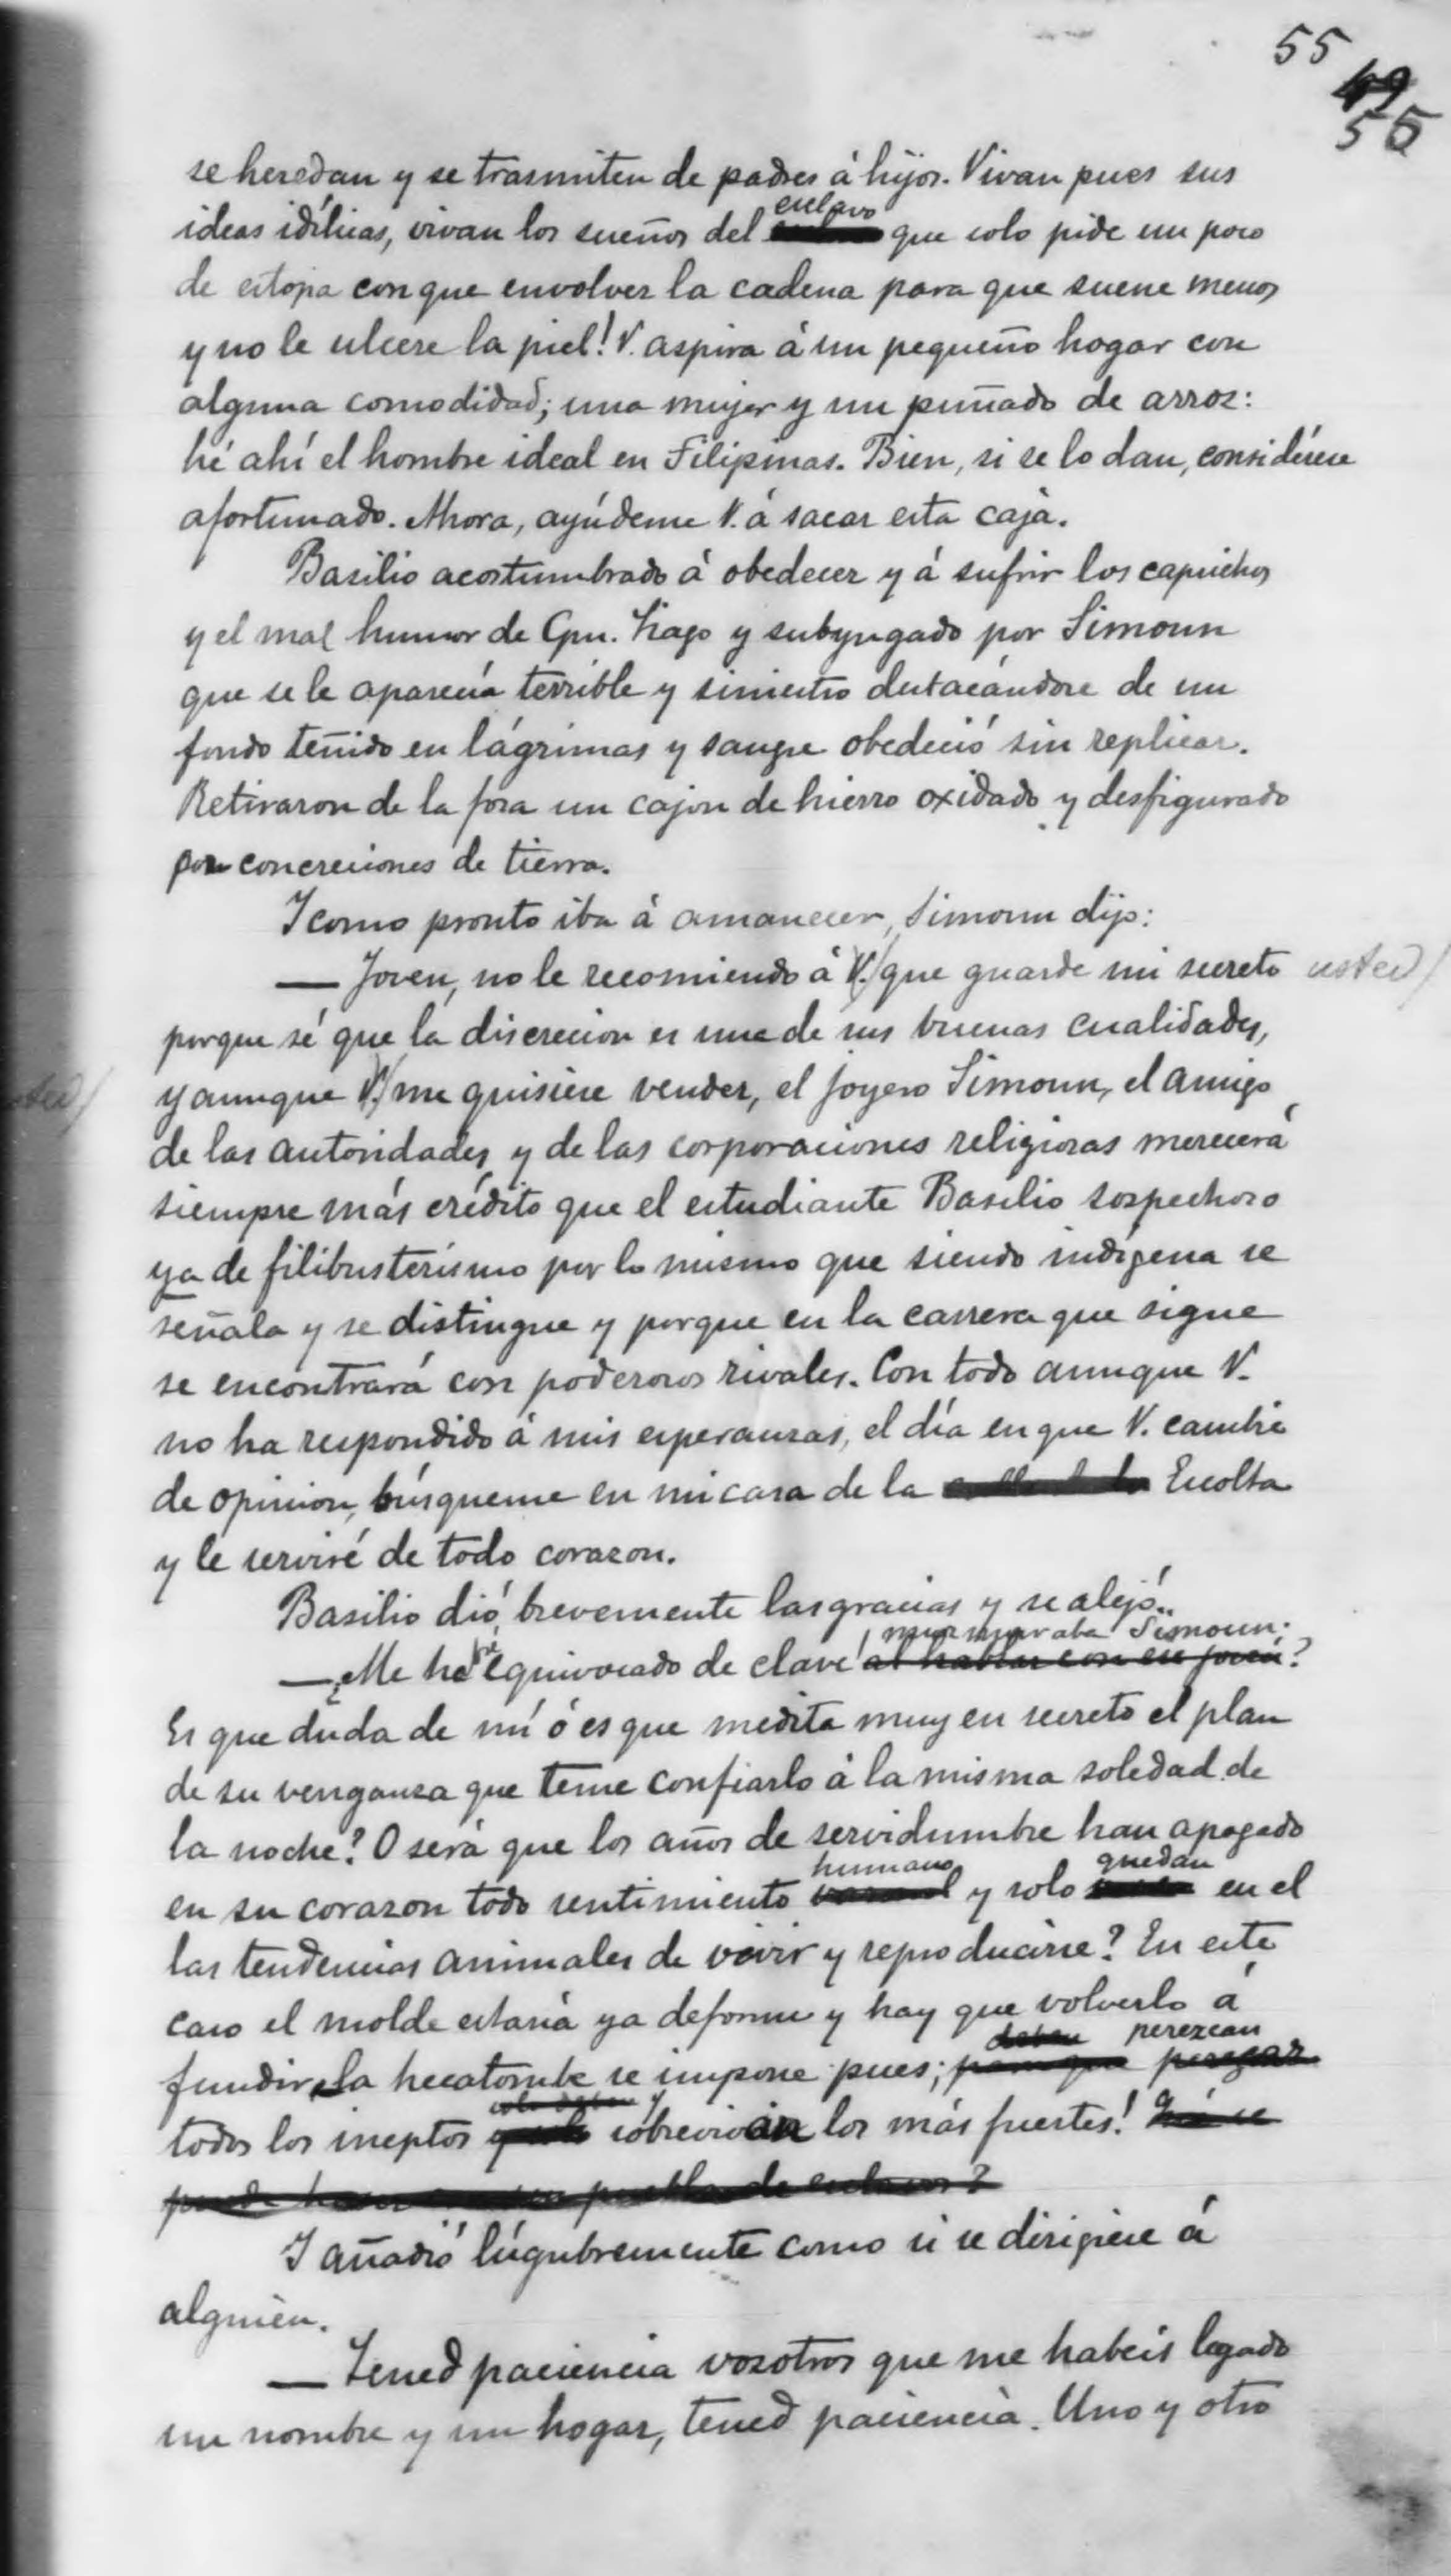 55
49
55
se heredan y se trasmiten de padres á hijos. Vivan pues sus
esclavo
ideas idílicas, vivan los sueños del que solo pide un poco
de estopa con que envolver la cadena para que suene menos
y no le ulcere la piel! V. aspira á un pequeño hogar con
alguna comodidad; una mujer y un puñado de arroz:
hé ahí el hombre ideal en Filipinas. Bien, si se lo dan, considérese
afortunado. Ahora, ayúdeme V. á sacar esta caja.
Basilio acostumbrado á obedecer y á sufrir los caprichos
y el mal humor de Cpn. Tiago y subyugado por Simoun
que se le aparecía terrible y siniestro destacándose de un
fondo teñido en lágrimas y sangre obedeció sin replicar.
Retiraron de la fosa un cajon de hierro oxidado y desfigurado
por concreciones de tierra.
Y como pronto iba á amanecer, Simoun dijo:
— Joven, no le recomiendo á V. que guarde mi secreto usted/
porque sé que la discrecion es una de sus buenas cualidades,
y aunque V. me quisiese vender, el joyero Simoun, el amigo
de las autoridades y de las corporaciones religiosas merecerá
siempre más crédito que el estudiante Basilio sospechoso
ya de filibusterismo por lo mismo que siendo indígena se
señala y se distingue y porque en la carrera que sigue
se encontrará con poderosos rivales. Con todo aunque V.
no ha respondido á mis esperanzas, el día en que V. cambie
de opinion, búsqueme en mi casa de la Escolta
y le serviré de todo corazon.
Basilio dió brevemente las gracias y se alejó..
murmuraba Simoun:
— ¿Me he equivocado de clave al hablar con ese joven?
Es que duda de mí ó es que medita muy en secreto el plan
de su venganza que teme confiarlo á la misma soledad de
la noche? O será que los años de servidumbre han apagado
humano quedan
en su corazon todo sentimiento y solo en el
las tendencias animales de vivir y reproducirse? En este
caso el molde estaría ya deforme y hay que volverlo á
deben perezcan
fundir, la hecatombe se impone pues; para que perezcan
y
todos los ineptos sobrevivan los más fuertes!
Y añadió lúgubremente como si se dirigiese á
alguien.
— Tened paciencia vosotros que me habeis legado
un nombre y un hogar, tened paciencia. Uno y otro